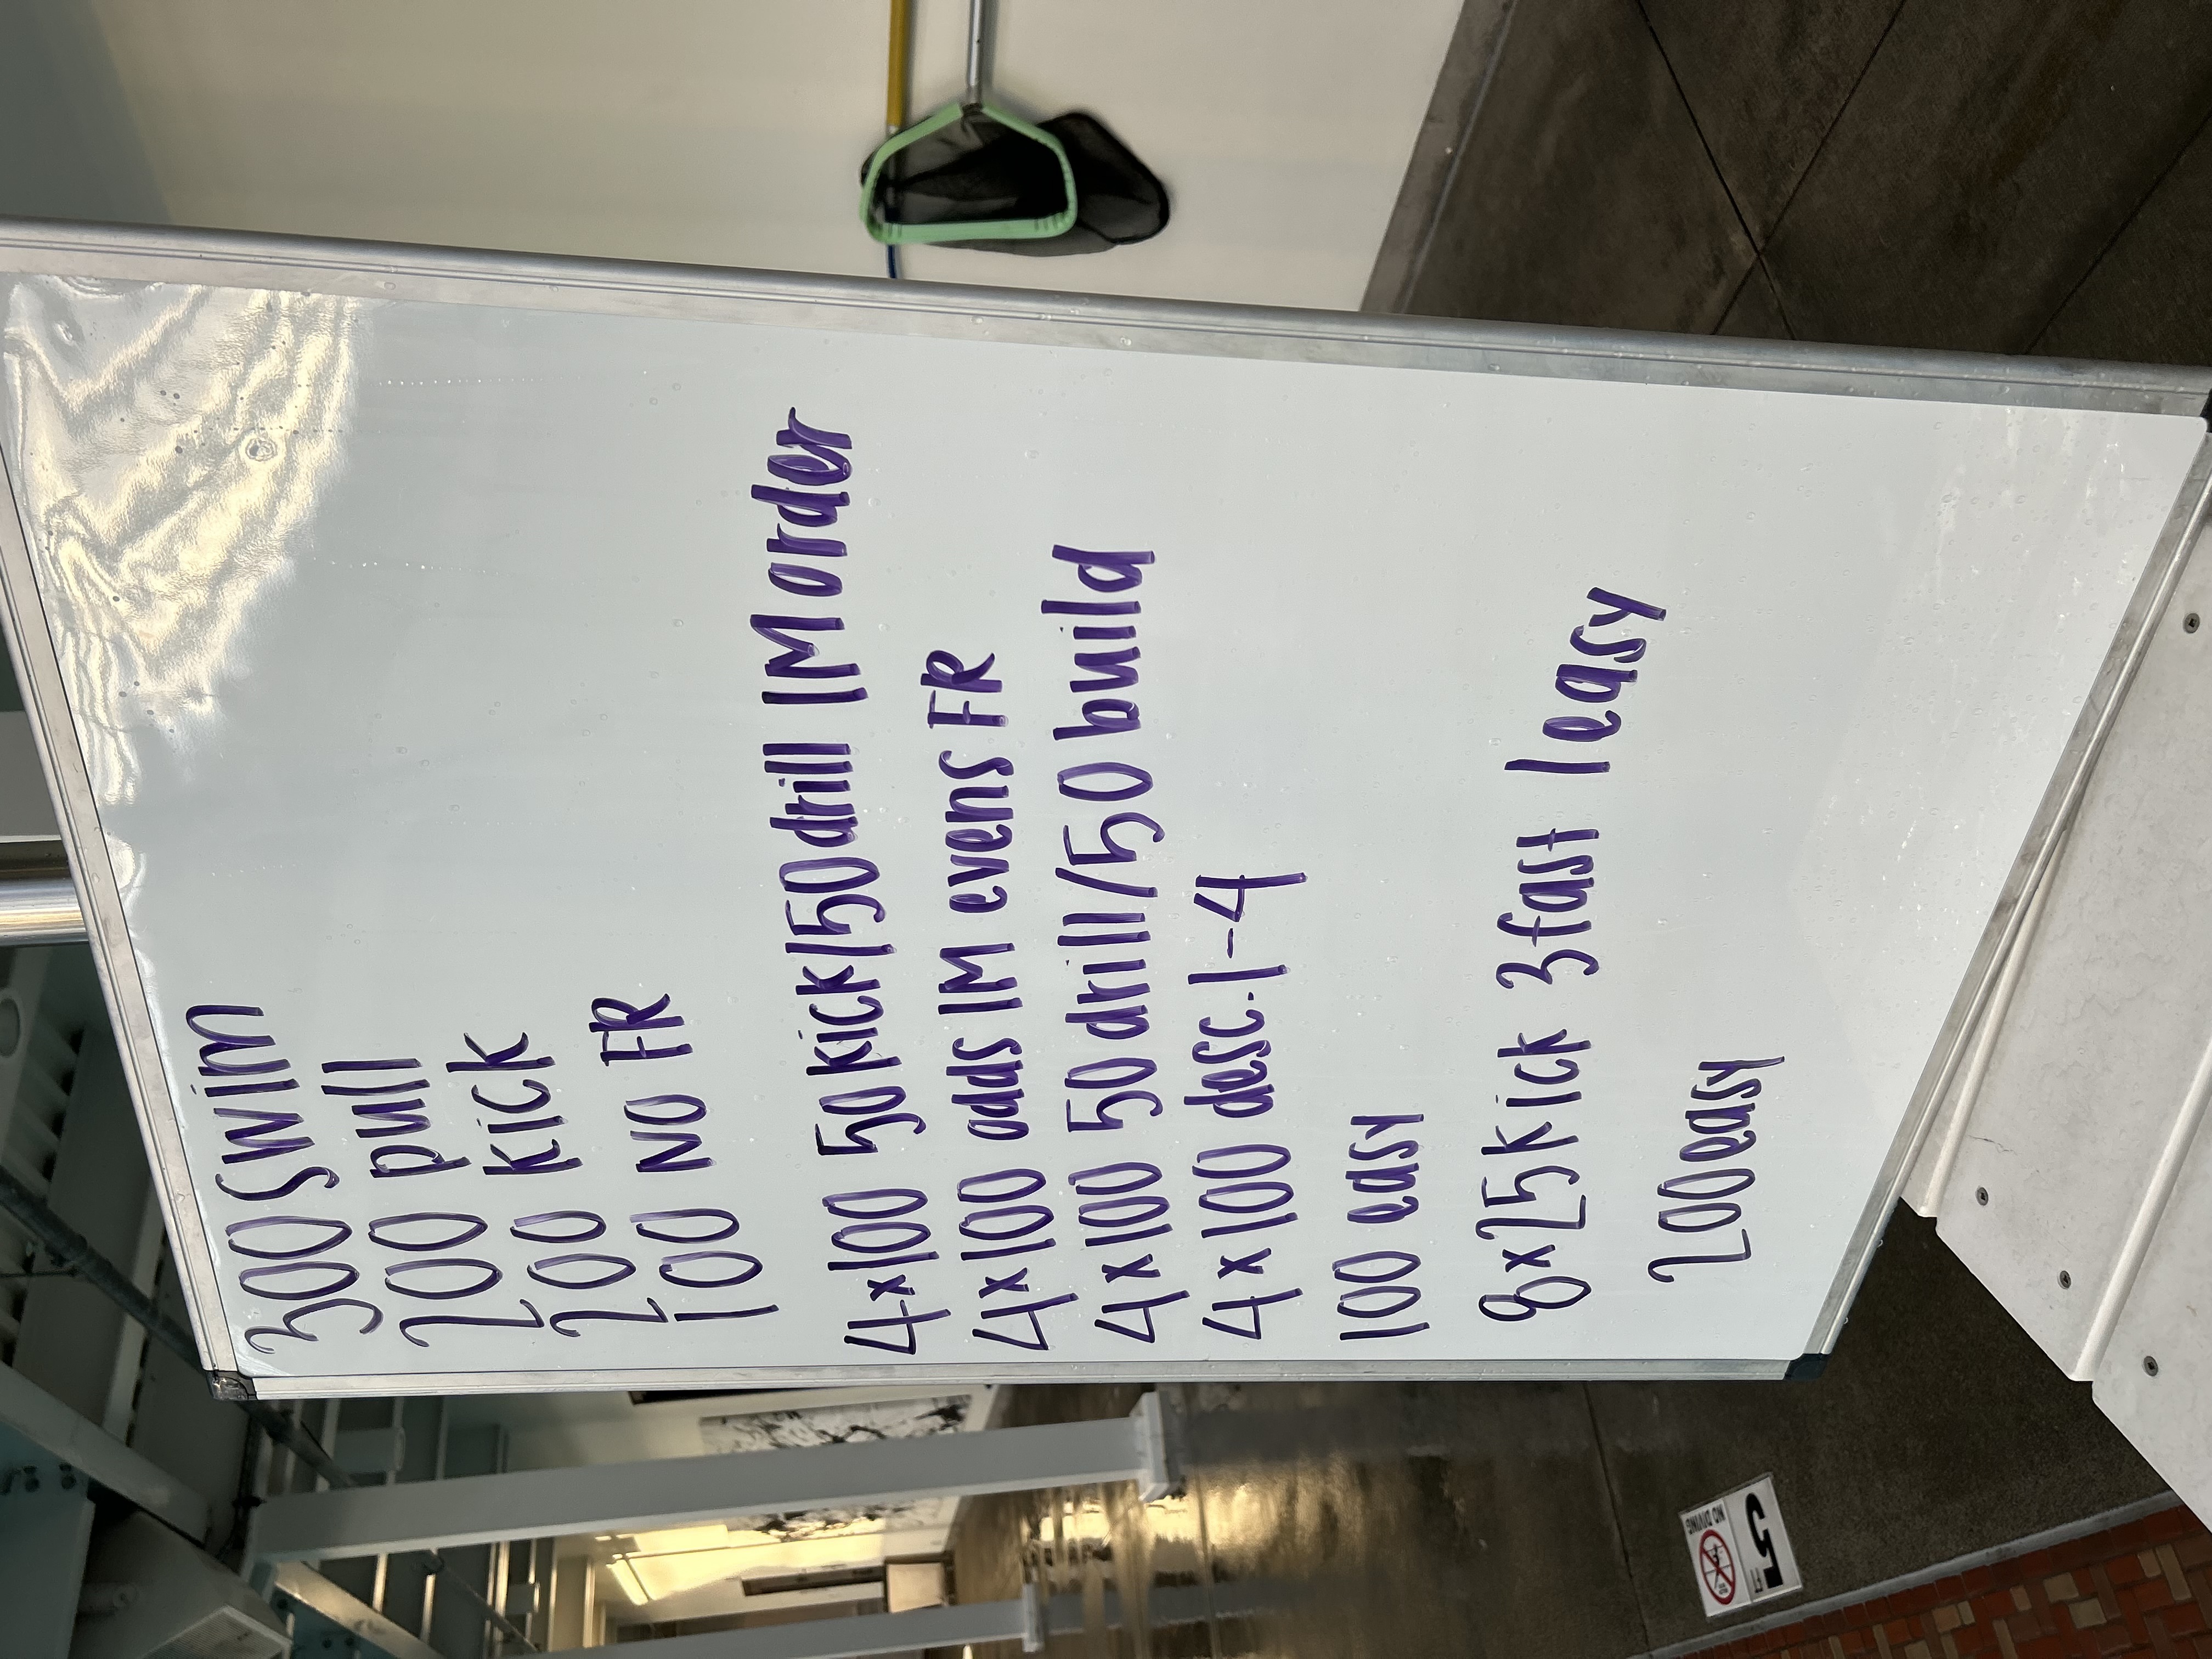 300 swim
200 pull
200 kick
100 NO FR
4x100 50 kick/50 drill IM order
4x100 odds IM evens FR
4x100 50 drill/50 build
4x100 desc. 1-4
100 easy
8x25 kick 3 fast 1 easy
200 easy
5 FT
NO DIVING